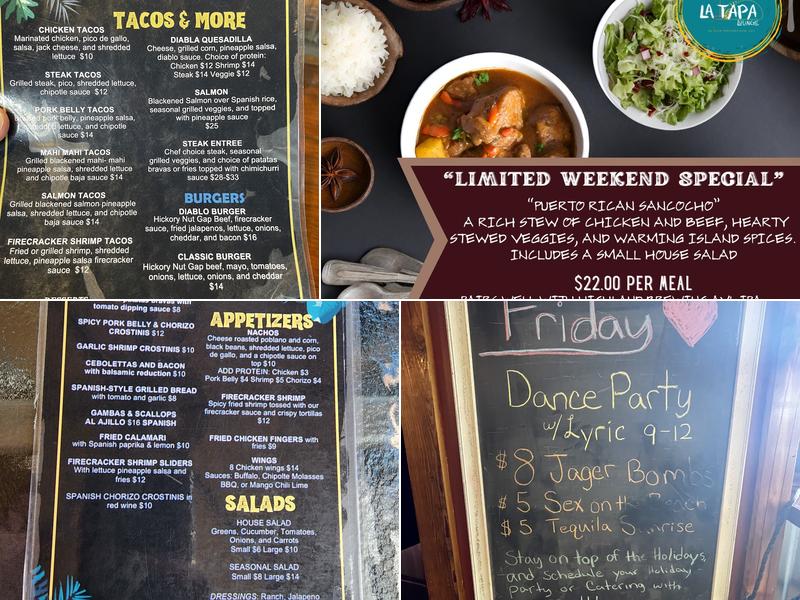 TACOS & MORE
CHICKEN TACOS
Marinated chicken, pico de gallo,
salsa, jack cheese, and shredded
lettuce $10
STEAK TACOS
Grilled steak, pico, shredded lettuce,
chipotle sauce $12
PORK BELLY TACOS
pork belly, pineapple salsa,
lettuce, and chipotle
sauce $14
MAHI MAHI TACOS
Grilled blackened mahi- mahi
pineapple salsa, shredded lettuce,
and chipotle baja sauce $14
SALMON TACOS
Grilled blackened salmon pineapple
salsa, shredded lettuce, and chipotle
baja sauce $14
FIRECRACKER SHRIMP TACOS
Fried or grilled shrimp, shredded
lettuce, pineapple salsa firecracker
sauce $12
DIABLA QUESADILLA
Cheese, grilled corn, pineapple salsa,
diablo sauce. Choice of protein:
Chicken $12 Shrimp $14
Steak $14 Veggie $12
SALMON
Blackened Salmon over Spanish rice,
seasonal grilled veggies, and topped
with pineapple sauce
$25
STEAK ENTREE
Chef choice steak, seasonal
grilled veggies, and choice of patatas
bravas or fries topped with chimichurri
sauce $28-$33
BURGERS
DIABLO BURGER
Hickory Nut Gap Beef, firecracker
sauce, fried jalapenos, lettuce, onions,
cheddar, and bacon $16
CLASSIC BURGER
Hickory Nut Gap beef, mayo, tomatoes,
onions, lettuce, onions, and cheddar
$14
LA TAPA
LOUNGE
"LIMITED WEEKEND SPECIAL"
"PUERTO RICAN SANCOCHO"
A RICH STEW OF CHICKEN AND BEEF, HEARTY
STEWED VEGGIES, AND WARMING ISLAND SPICES.
INCLUDES A SMALL HOUSE SALAD
$22.00 PER MEAL
tomato dipping sauce $8
SPICY PORK BELLY & CHORIZO
CROSTINIS $12
GARLIC SHRIMP CROSTINIS $10
CEBOLETTAS AND BACON
with balsamic reduction $10
SPANISH-STYLE GRILLED BREAD
with tomato and garlic $8
GAMBAS & SCALLOPS
AL AJILLO $16 SPANISH
FRIED CALAMARI
with Spanish paprika & lemon $10
FIRECRACKER SHRIMP SLIDERS
With lettuce pineapple salsa and
fries $12
SPANISH CHORIZO CROSTINIS in
red wine $10
APPETIZERS
NACHOS
Cheese roasted poblano and corn,
black beans, shredded lettuce, pico
de gallo, and a chipotle sauce on
top $10
ADD PROTEIN: Chicken $3
Pork Belly $4 Shrimp $5 Chorizo $4
FIRECRACKER SHRIMP
Spicy fried shrimp tossed with our
firecracker sauce and crispy tortillas
$12
FRIED CHICKEN FINGERS with
fries $9
WINGS
8 Chicken wings $14
Sauces: Buffalo, Chipolte Molasses
BBQ, or Mango Chili Lime
SALADS
HOUSE SALAD
Greens, Cucumber, Tomatoes,
Onions, and Carrots
Small $6 Large $10
SEASONAL SALAD
Small $8 Large $14
DRESSINGS: Ranch, Jalapeno
Friday
Dance Party
w/ Lyric 9-12
$8 Jager Bom
$5 Sex on the Beach
$5 Tequila Sunrise
Stay on top of the Holidays
and schedule your Holiday
Party or Catering with